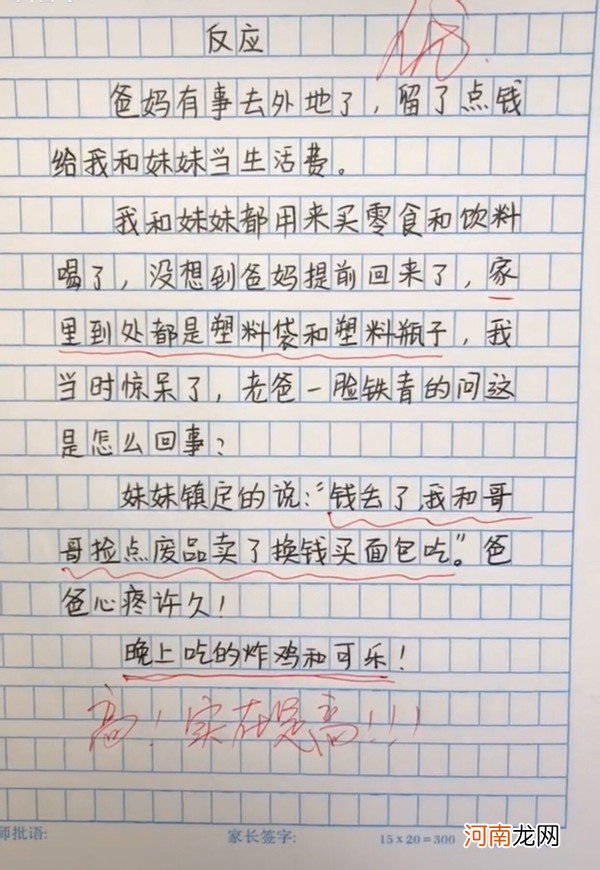 反应
优
爸妈有事去外地了，留了点钱
给我和妹妹当生活费。
我和妹妹都用来买零食和饮料
喝了，没想到爸妈提前回来了，家
里到处都是塑料袋和塑料瓶子，我
当时惊呆了，老爸一脸铁青的问这
是怎么回事？
妹妹镇定的说：“钱丢了，我和哥
哥捡点废品卖了换钱买面包吃”。爸
爸心疼许久！
晚上吃的炸鸡和可乐！
高！实在是高！！！
师批语:
家长签字:
15×20=300
河南龙网